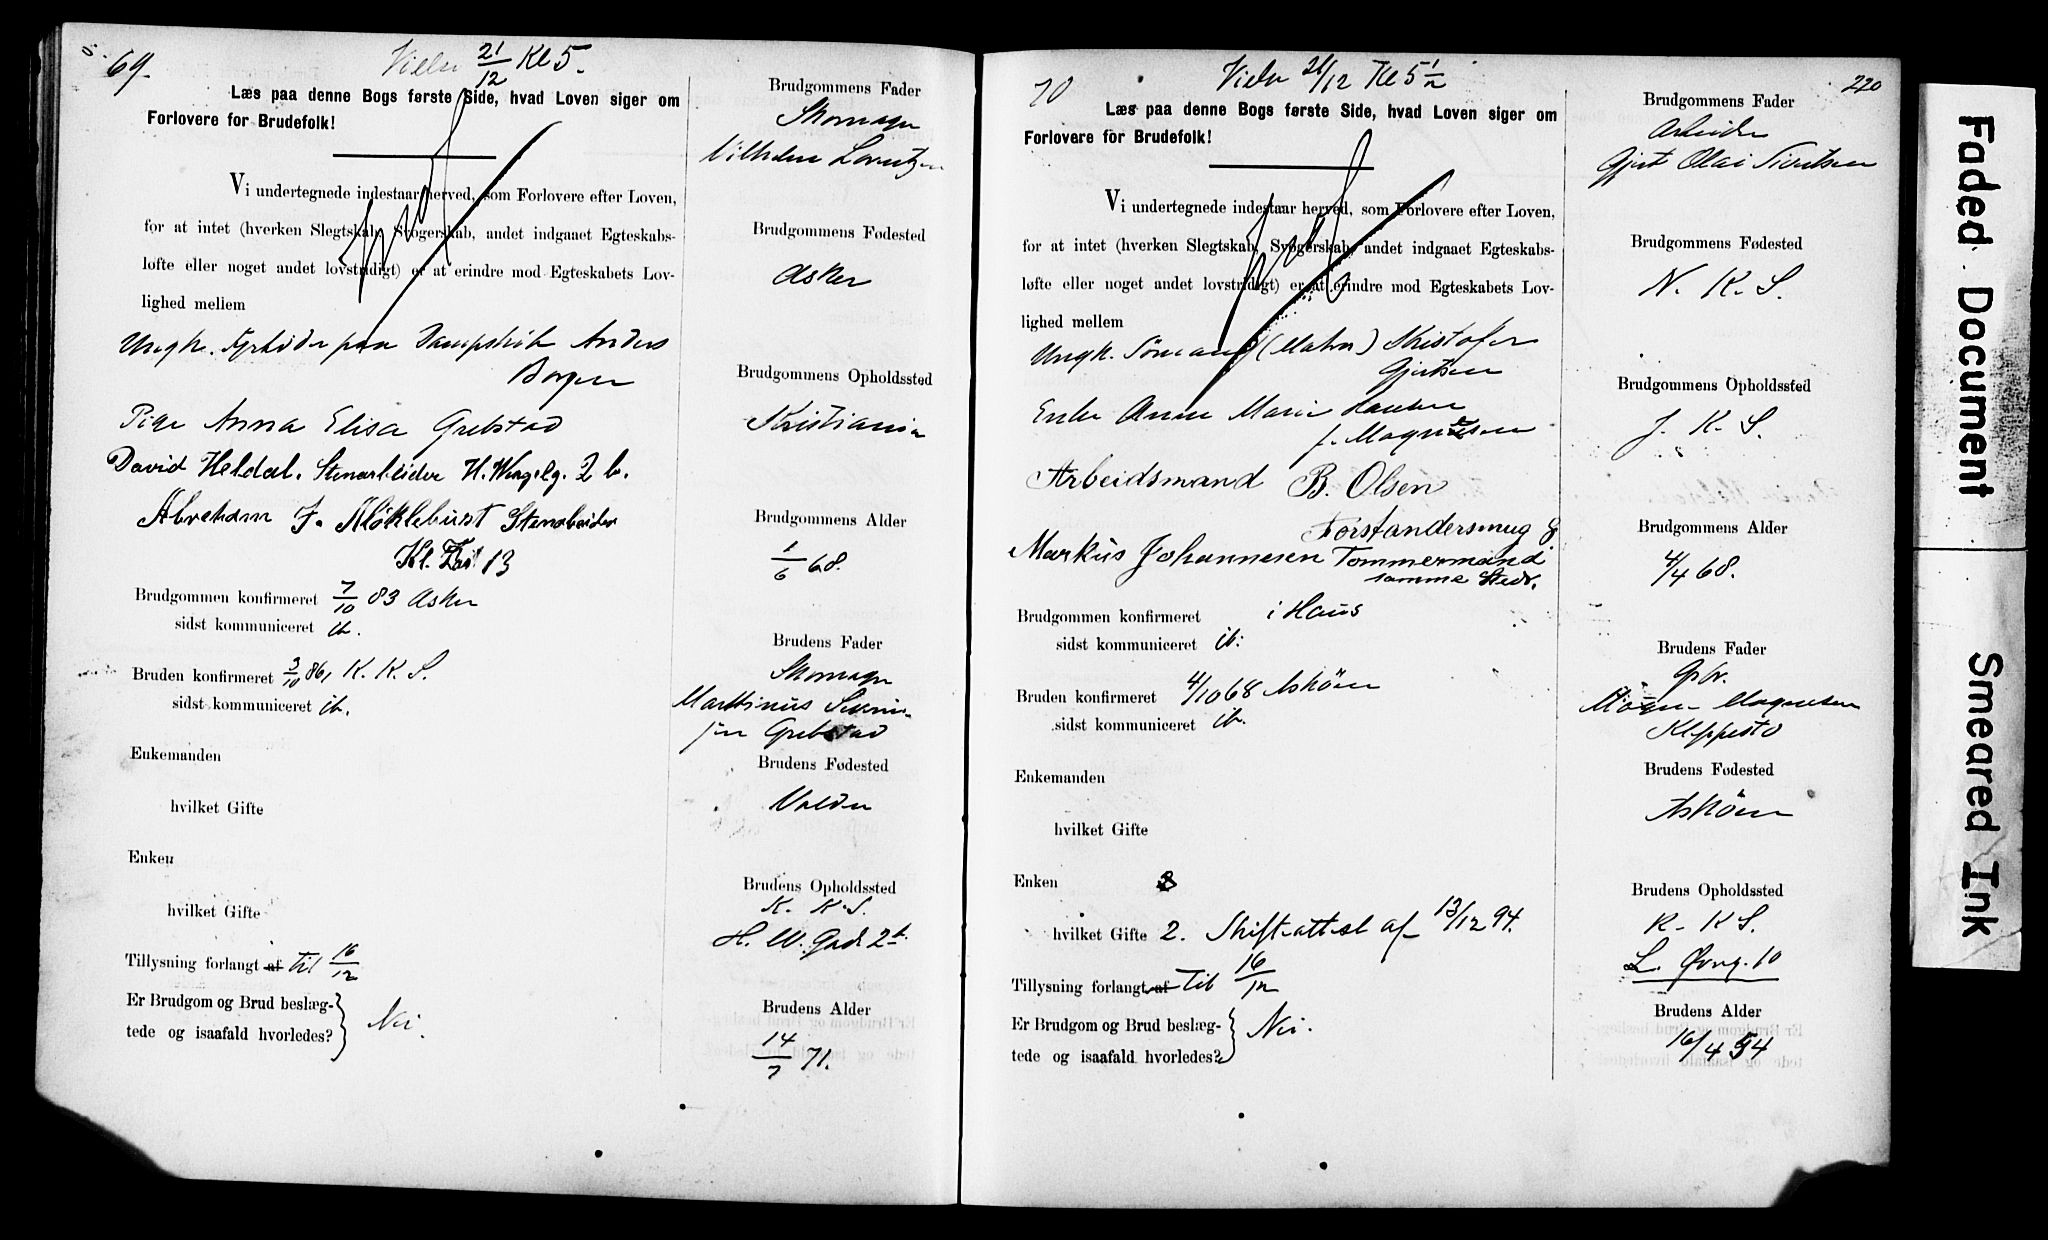 69.
Vielse 21/12 Kl 5.
Læs paa denne Bogs første Side, hvad Loven siger om
Forlovere for Brudefolk!
Vi undertegnede indestaar herved, som Forlovere efter Loven,
for at intet (hverken Slegtskab, Svogerskab, andet indgaaet Egteskabs-
løfte eller noget andet lovstridigt) er at erindre mod Egteskabets Lov-
lighed mellem
Ungk. Fyrbøder paa Dampskib Anders
Borgen
Pige Anna Elisa Grebstad
David Heldal. Stenarbeider H. Wergelg. 2 b.
Abraham J. Kløklebust Stenarbeider
Kl. 13
Brudgommen konfirmeret 7/10 83 Asker
sidst kommuniceret ib.
Bruden konfirmeret 3/10 86, K. K. S.
sidst kommuniceret ib.
Enkemanden
hvilket Gifte
Enken
hvilket Gifte
Tillysning forlangt af til 16/12
Er Brudgom og Brud beslæg-
tede og isaafald hvorledes? Nei.
Brudgommens Fader
Skomager
Vilhelm Lorentzen
Brudgommens Fødested
Asker
Brudgommens Opholdssted
Kristiania
Brudgommens Alder
1/6 68.
Brudens Fader
Skomager
Marthinus
Grebstad
Brudens Fødested
Volden
Brudens Opholdssted
K. K. S.
H. W. Gade 2 b.
Brudens Alder
14/7 71.
70
Vielse 21/12 Kl 5 1/2
220
Læs paa denne Bogs første Side, hvad Loven siger om
Forlovere for Brudefolk!
Vi undertegnede indestaar herved, som Forlovere efter Loven,
for at intet (hverken Slegtskab, Svogerskab, andet indgaaet Egteskabs-
løfte eller noget andet lovstridigt) er at erindre mod Egteskabets Lov-
lighed mellem
Ungk. Sømand (Matros) Kristofer
Gjertsen
Enke Anne Marie Larsen
f. Magnesen
Arbeidsmand B. Olsen
Forstandersmug 8
Markus Johannesen Tømmermand
samme Sted.
Brudgommen konfirmeret i Haus
sidst kommuniceret ib.
Bruden konfirmeret 4/10 68 Askøen
sidst kommuniceret ib.
Enkemanden
hvilket Gifte
Enken
hvilket Gifte 2. Skifteattest af 13/12 94.
Tillysning forlangt af til 16/12
Er Brudgom og Brud beslæg-
tede og isaafald hvorledes? Nei.
Brudgommens Fader
Arbeider
Gjert Olai Sivertsen
Brudgommens Fødested
N. K. S.
Brudgommens Opholdssted
J. K. S.
Brudgommens Alder
4/4 68.
Brudens Fader
Gbr.
Mogens Magnesen
Kleppestø
Brudens Fødested
Askøen
Brudens Opholdssted
K. K S.
L. Øvreg. 10
Brudens Alder
16/4 54
Faded Document
Smeared Ink